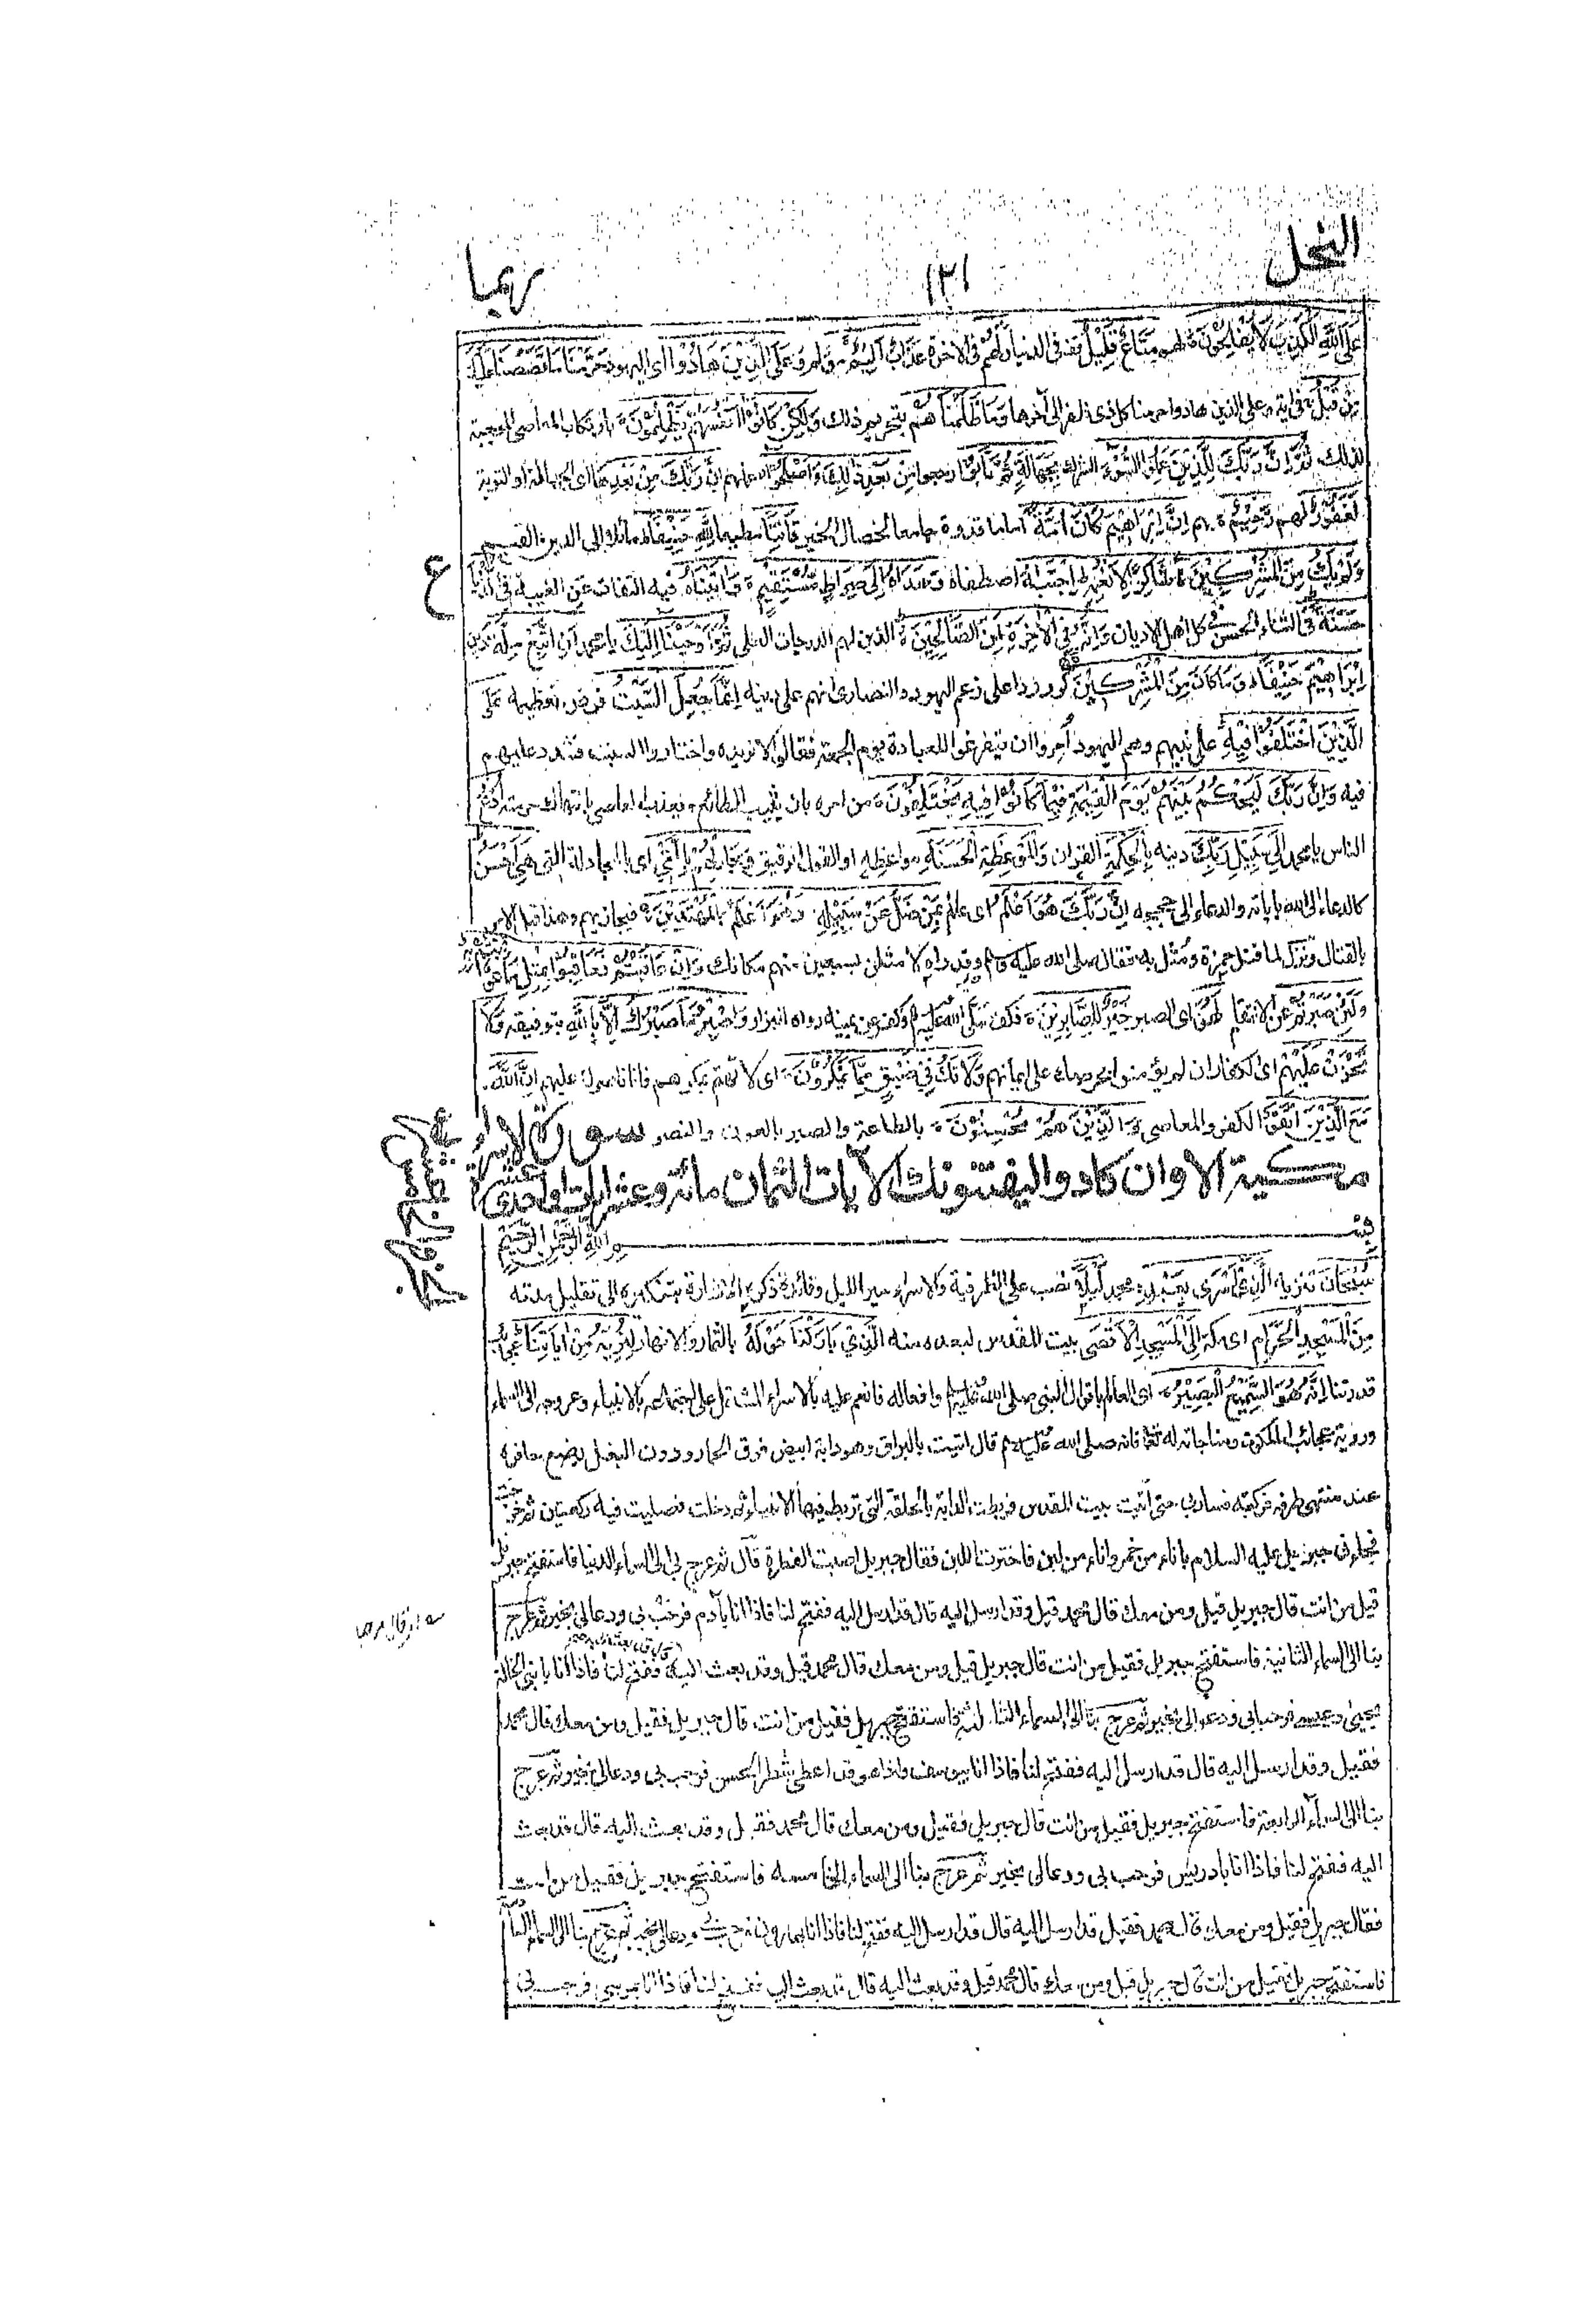 النحل ١٣١ ربما
عَلَى اللَّهِ الْكَذِبَ لَا يُفْلِحُونَ لهم مَتَاعٌ قَلِيلٌ فى الدنيا وَلَهُمْ فى الاخرة عَذَابٌ أَلِيمٌ وَعَلَى الَّذِينَ هَادُوا اى اليهود حَرَّمْنَا مَا قَصَصْنَا عَلَيْكَ
مِنْ قَبْلُ فى اية وعلى الذين هادوا حرمنا كل ذى ظفر الى آخرها وَمَا ظَلَمْنَاهُمْ بتحريم ذلك وَلَكِنْ كَانُوا أَنْفُسَهُمْ يَظْلِمُونَ بارتكاب المعاصى الموجبة
لذلك ثُمَّ إِنَّ رَبَّكَ لِلَّذِينَ عَمِلُوا السُّوءَ الشرك بِجَهَالَةٍ ثُمَّ تَابُوا رجعوا مِنْ بَعْدِ ذَلِكَ وَأَصْلَحُوا عملهم إِنَّ رَبَّكَ مِنْ بَعْدِهَا اى الجهالة او التوبة
لَغَفُورٌ لهم رَحِيمٌ بهم إِنَّ إِبْرَاهِيمَ كَانَ أُمَّةً اماما قدوة جامعا لخصال الخير قَانِتًا مطيعا لِلَّهِ حَنِيفًا مائلا الى الدين القيم
وَلَمْ يَكُ مِنَ الْمُشْرِكِينَ شَاكِرًا لِأَنْعُمِهِ اجْتَبَاهُ اصطفاه وَهَدَاهُ إِلَى صِرَاطٍ مُسْتَقِيمٍ وَآتَيْنَاهُ فيه التفات عن الغيبة فِى الدُّنْيَا
حَسَنَةً هى الثناء الحسن فى كل اهل الاديان وَإِنَّهُ فِى الْآخِرَةِ لَمِنَ الصَّالِحِينَ الذين لهم الدرجات العلى ثُمَّ أَوْحَيْنَا إِلَيْكَ يا محمد أَنِ اتَّبِعْ مِلَّةَ دين
إِبْرَاهِيمَ حَنِيفًا وَمَا كَانَ مِنَ الْمُشْرِكِينَ كرر ردا على زعم اليهود والنصارى انهم على دينه إِنَّمَا جُعِلَ السَّبْتُ فرض تعظيمه عَلَى
الَّذِينَ اخْتَلَفُوا فِيهِ على نبيهم وهم اليهود أمروا ان يتفرغوا للعبادة يوم الجمعة فقالوا لا نريده واختاروا السبت فشدد عليهم
فيه وَإِنَّ رَبَّكَ لَيَحْكُمُ بَيْنَهُمْ يَوْمَ الْقِيَامَةِ فِيمَا كَانُوا فِيهِ يَخْتَلِفُونَ من امره بان يثيب الطائع ويعذب العاصى بانتهاك حرمته ادْعُ
الناس يا محمد إِلَى سَبِيلِ رَبِّكَ دينه بِالْحِكْمَةِ القران وَالْمَوْعِظَةِ الْحَسَنَةِ مواعظه او القول الرقيق وَجَادِلْهُمْ بِالَّتِى اى بالمجادلة التى هِىَ أَحْسَنُ
كالدعاء الى الله باياته والدعاء الى حججه إِنَّ رَبَّكَ هُوَ أَعْلَمُ اى عالم بِمَنْ ضَلَّ عَنْ سَبِيلِهِ وَهُوَ أَعْلَمُ بِالْمُهْتَدِينَ فيجازيهم وهذا قبل الامر
بالقتال ونزل لما قتل حمزة ومثل به فقال صلى الله عليه وسلم وقد راه لأمثلن بسبعين منهم مكانك وَإِنْ عَاقَبْتُمْ فَعَاقِبُوا بِمِثْلِ مَا عُوقِبْتُمْ بِهِ
وَلَئِنْ صَبَرْتُمْ عن الانتقام لَهُوَ اى الصبر خَيْرٌ لِلصَّابِرِينَ فكف صلى الله عليه وسلم وكفر عن يمينه رواه البزار وَاصْبِرْ وَمَا صَبْرُكَ إِلَّا بِاللَّهِ بتوفيقه وَلَا
تَحْزَنْ عَلَيْهِمْ اى الكفار ان لم يؤمنوا لحرصك على ايمانهم وَلَا تَكُ فِى ضَيْقٍ مِمَّا يَمْكُرُونَ اى لا تهتم بمكرهم فانا ناصرك عليهم إِنَّ اللَّهَ
مَعَ الَّذِينَ اتَّقَوْا الكفر والمعاصى وَالَّذِينَ هُمْ مُحْسِنُونَ بالطاعة والصبر بالعون والنصر سورة الاسراء
مكية الا وان كادوا ليفتنونك الآيات الثمان مائة وعشر ايات او احدى عشرة
بسم الله الرحمن الرحيم
سُبْحَانَ تنزيه الَّذِى أَسْرَى بِعَبْدِهِ محمد لَيْلًا نصب على الظرفية والاسراء سير الليل وفائدة ذكره الاشارة بتنكيره الى تقليل مدته
مِنَ الْمَسْجِدِ الْحَرَامِ اى مكة إِلَى الْمَسْجِدِ الْأَقْصَى بيت المقدس لبعده منه الَّذِى بَارَكْنَا حَوْلَهُ بالثمار والانهار لِنُرِيَهُ مِنْ آيَاتِنَا عجائب
قدرتنا إِنَّهُ هُوَ السَّمِيعُ الْبَصِيرُ اى العالم باقوال النبى صلى الله عليه وسلم وافعاله فانعم عليه بالاسراء المشتمل على اجتماعه بالانبياء وعروجه الى السماء
ورؤية عجائب الملكوت ومناجاته له تعالى فانه صلى الله عليه وسلم قال اتيت بالبراق وهو دابة ابيض فوق الحمار ودون البغل يضع حافره
عند منتهى طرفه فركبته فسار بى حتى اتيت بيت المقدس فربطت الدابة بالحلقة التى تربط فيها الانبياء ثم دخلت فصليت فيه ركعتين ثم خرجت
فجاءنى جبريل عليه السلام باناء من خمر واناء من لبن فاخترت اللبن فقال جبريل اصبت الفطرة قال ثم عرج بى الى السماء الدنيا فاستفتح جبريل
قيل من انت قال جبريل قيل ومن معك قال محمد قيل وقد ارسل اليه قال قد ارسل اليه ففتح لنا فاذا انا بآدم فرحب بى ودعا لى بخير ثم عرج
بنا الى السماء الثانية فاستفتح جبريل فقيل من انت قال جبريل قيل ومن معك قال محمد قيل وقد بعث اليه ففتح لنا فاذا انا بابنى الخالة
يحيى وعيسى فرحبا بى ودعوا لى بخير ثم عرج بنا الى السماء الثالثة فاستفتح جبريل فقيل من انت قال جبريل فقيل ومن معك قال محمد
فقيل وقد ارسل اليه قال قد ارسل اليه ففتح لنا فاذا انا بيوسف واذا هو قد اعطى شطر الحسن فرحب بى ودعا لى بخير ثم عرج
بنا الى السماء الرابعة فاستفتح جبريل فقيل من انت قال جبريل فقيل ومن معك قال محمد فقيل وقد بعث اليه قال قد بعث
اليه ففتح لنا فاذا انا بادريس فرحب بى ودعا لى بخير ثم عرج بنا الى السماء الخامسة فاستفتح جبريل فقيل من انت
فقال جبريل فقيل ومن معك قال محمد فقيل قد ارسل اليه قال قد ارسل اليه ففتح لنا فاذا انا بهارون فرحب بى ودعا لى بخير ثم عرج بنا الى السماء السادسة
فاستفتح جبريل فقيل من انت قال جبريل قيل ومن معك قال محمد قيل وقد بعث اليه قال قد بعث اليه ففتح لنا فاذا انا بموسى فرحب بى
ع
الجزء الخامس عشر